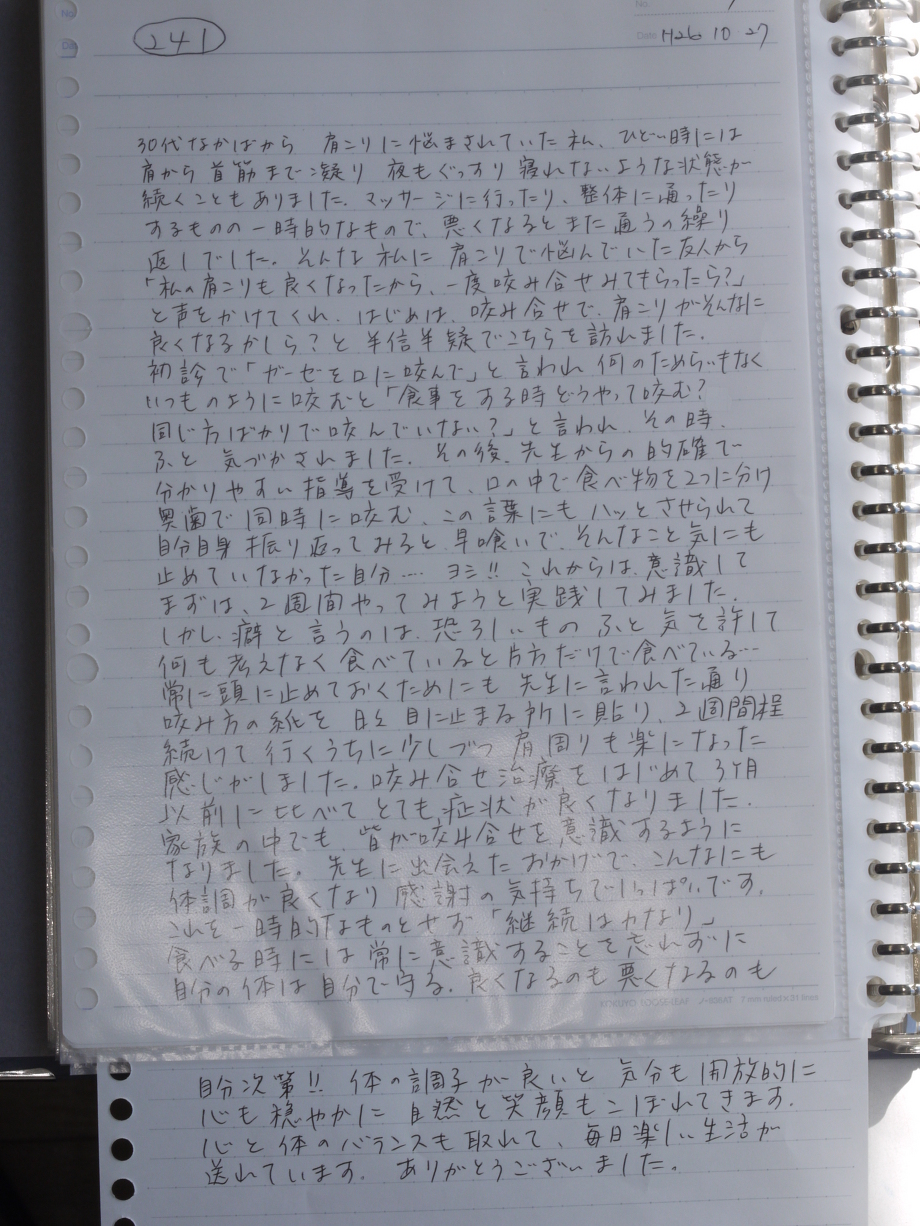 241
No.
Date H26 10 27
30代なかばから 肩こりに悩まされていた私、ひどい時には
肩から首筋まで凝り 夜もぐっすり寝れないような状態が
続くこともありました。マッサージに行ったり、整体に通ったり
するものの一時的なもので、悪くなるとまた通うの繰り
返しでした。そんな私に肩こりで悩んでいた友人から
「私の肩こりも良くなったから、一度咬み合せみてもらったら?」
と声をかけてくれ、はじめは、咬み合せで、肩こりがそんなに
良くなるかしら?と半信半疑でこちらを訪れました。
初診で「ガーゼを口に咬んで」と言われ 何のためらいもなく
いつものように咬むと「食事をする時どうやって咬む?
同じ方ばかりで咬んでいない?」と言われ、その時、
ふと 気づかされました。その後、先生からの的確で
分かりやすい指導を受けて、口の中で食べ物を2つに分け
奥歯で同時に咬む、この言葉にもハッとさせられて
自分自身振り返ってみると、早喰いで、そんなこと気にも
止めていなかった自分‥‥ ヨシ!! これからは、意識して
まずは、2週間やってみようと実践してみました。
しかし、癖と言うのは、恐ろしいもの ふと気を許して
何も考えなく食べていると片方だけで食べている…
常に頭に止めておくためにも 先生に言われた通り
咬み方の紙を 目に止まる所に貼り、2週間程
続けて行くうちに少しづつ 肩周りも楽になった
感じがしました。咬み合せ治療をはじめて3ヶ月
以前に比べてとても症状が良くなりました。
家族の中でも、皆が咬み合せを意識するように
なりました。先生に出会えたおかげで、こんなにも
体調が良くなり感謝の気持ちでいっぱいです。
これを一時的なものとせず「継続は力なり」
食べる時には常に意識することを忘れずに
自分の体は自分で守る。良くなるのも悪くなるのも
7 mm ruled×31 lines
自分次第!! 体の調子が良いと 気分も開放的に
心も穏やかに 自然と笑顔もこぼれてきます。
心と体のバランスも取れて、毎日楽しい生活が
送れています。ありがとうございました。